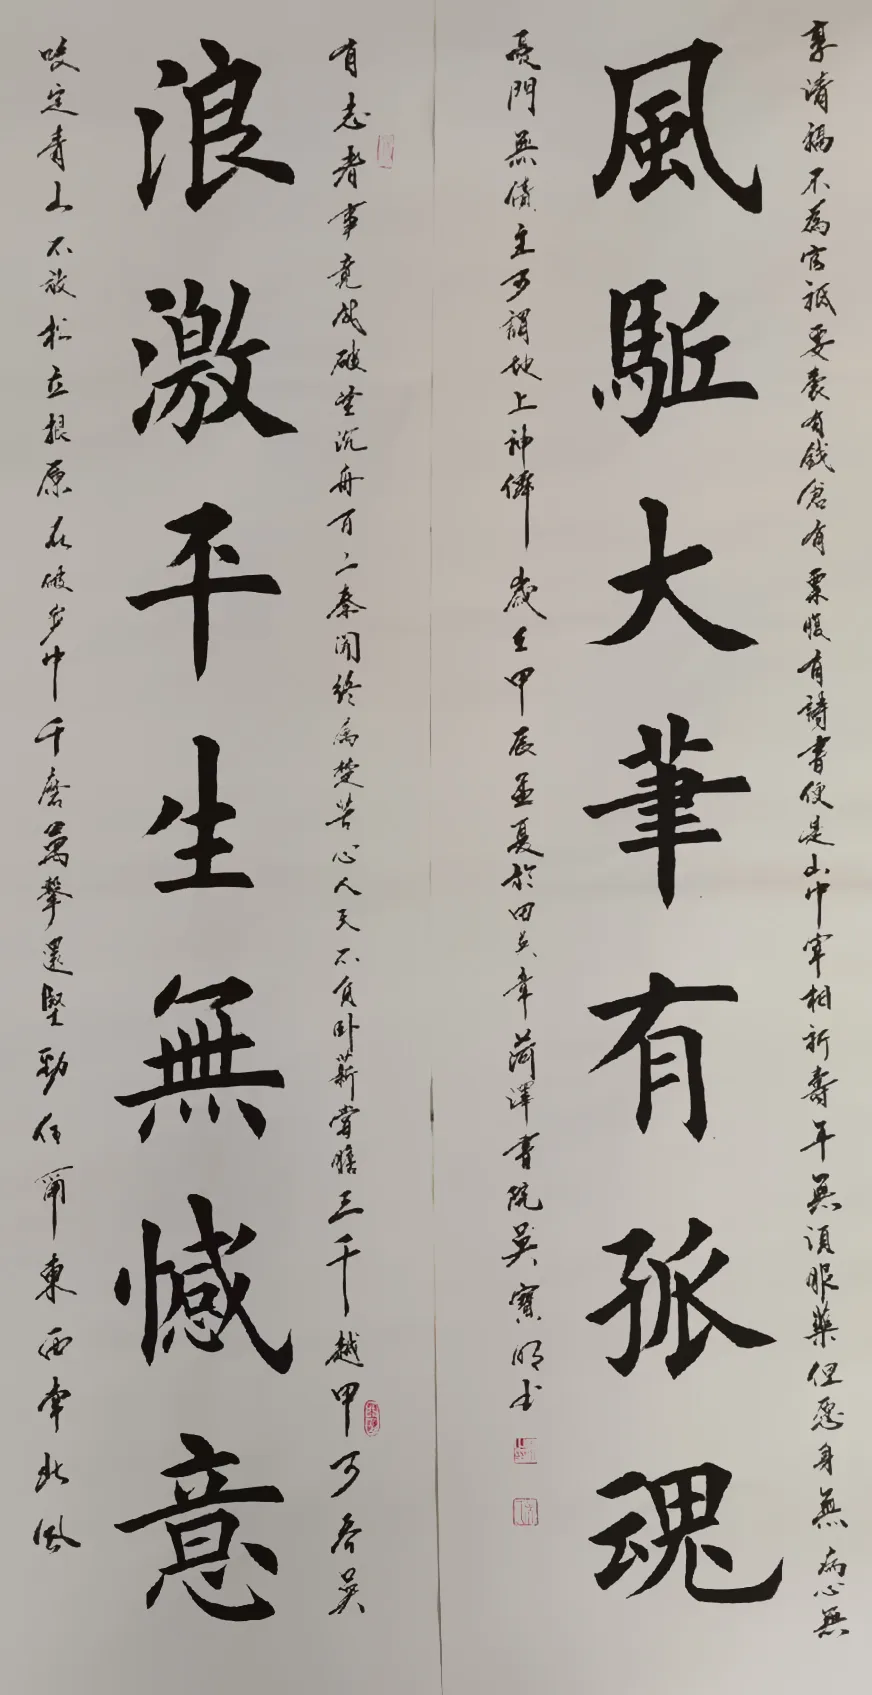 享清福不為官祗要囊有錢倉有粟腹有詩書便是山中宰相祈壽年無須眼藥但愿身無病心無
風駈大筆有孤魂
憂門無債主可謂地上神僊歲在甲辰孟夏於田 章菏澤書院吳寶明書
有志者事竟成破釜沉舟百二秦關終屬楚苦心人天不負卧薪嘗膽三千越甲可吞吳
浪激平生無憾意
咬定青山不放松立根原在破岩中千磨萬擊還堅勁任爾東西南北風